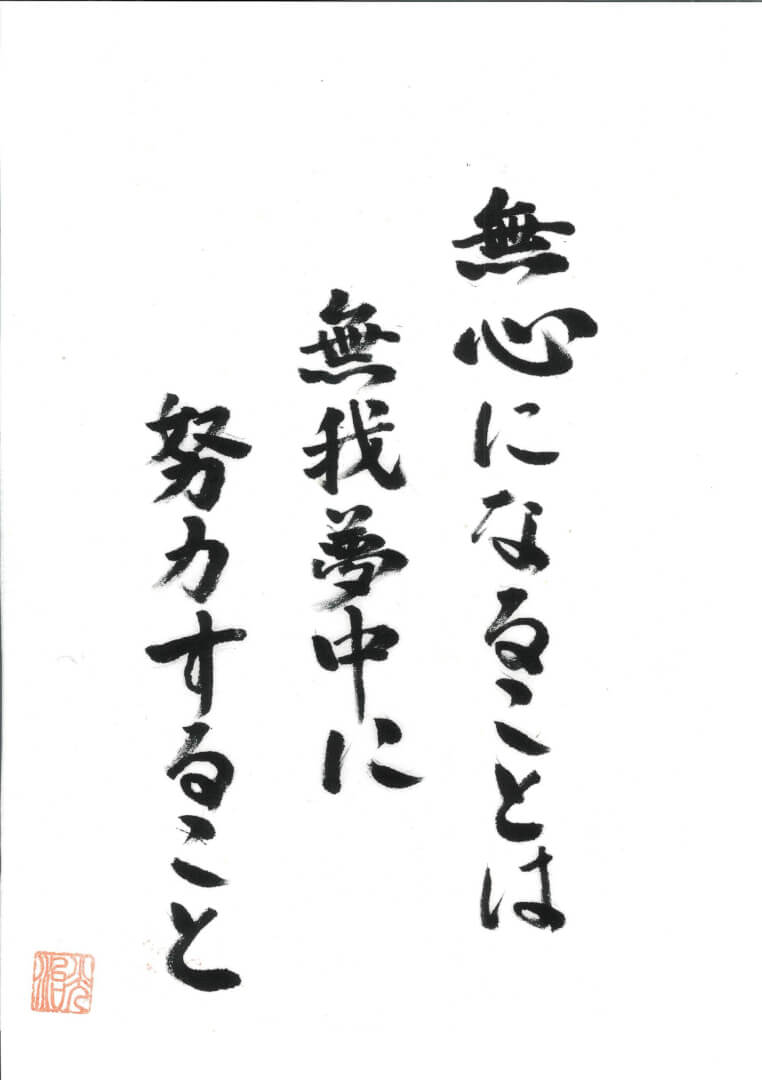 無心になることは
無我夢中に
努力すること